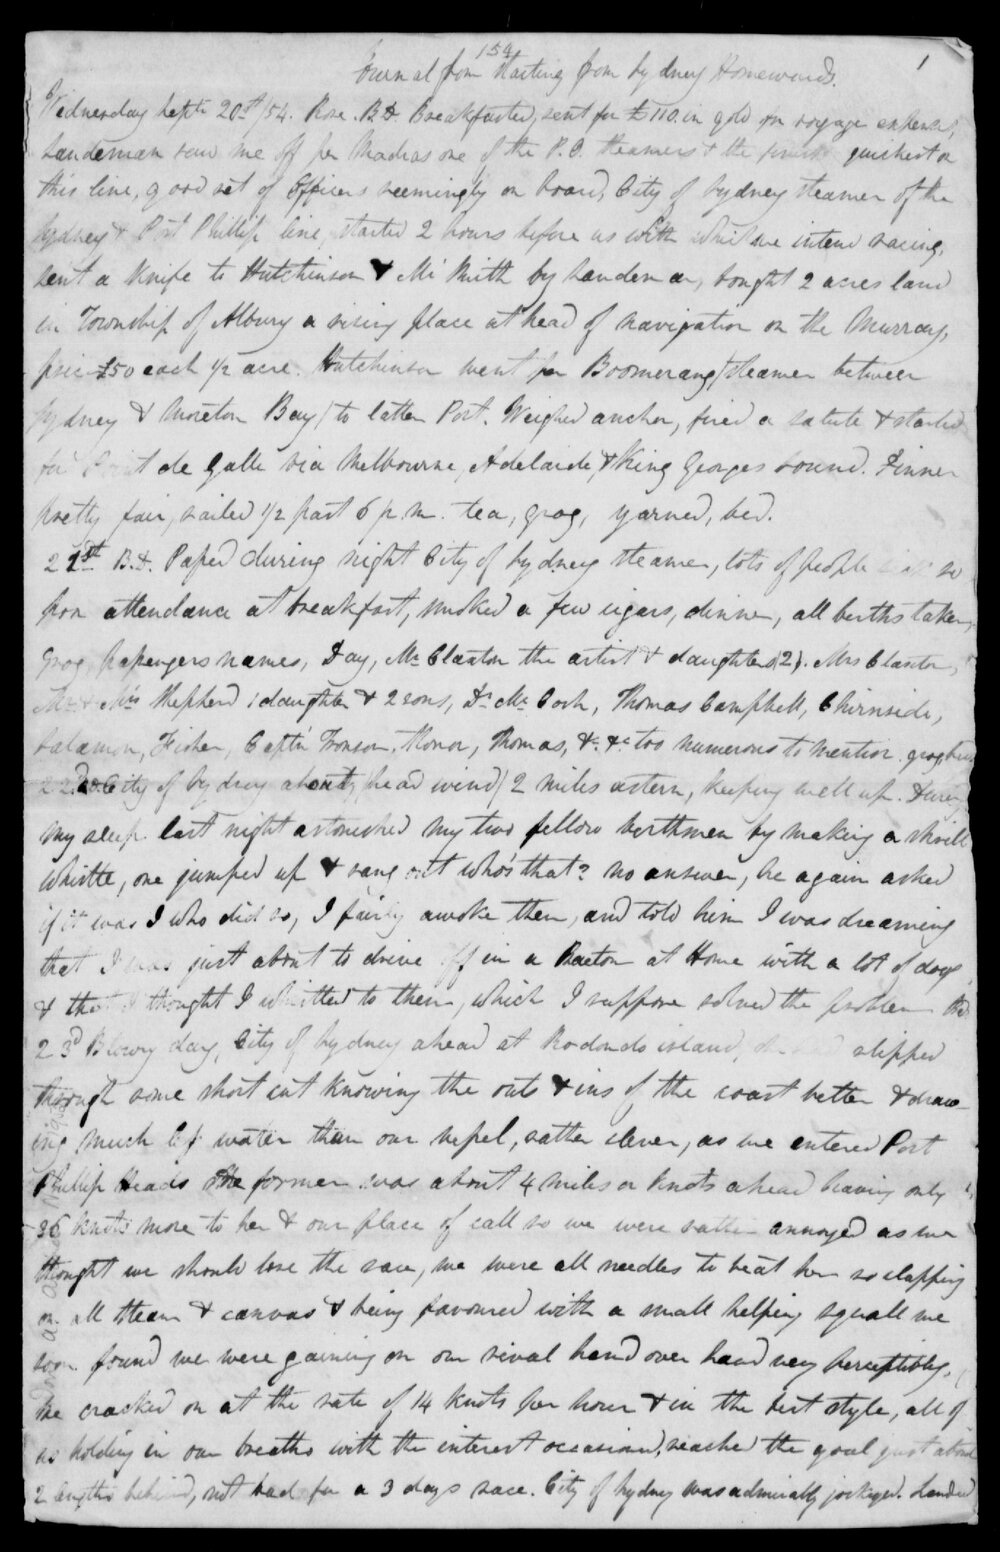 154
1
Journal from Starting from Sydney Homewards.
Wednesday Septr 20th/54. Rose. B.D. Breakfasted, sent for £110. in gold for voyage expenses,
Sandeman saw me off per Madras one of the P. O. Steamers & the quickest on
this line, good set of Officers seemingly on board, City of Sydney steamer of the
Sydney & Port Phillip line, started 2 hours before us with whi we intend racing,
sent a Knife to Hutchinson & by Sandeman, bought 2 acres land
in Township of Albury a rising place at head of navigation on the Murray,
price £50 each 1/2 acre. Hutchinson went per Boomerang (steamer between
Sydney & Moreton Bay) to latter Port. Weighed anchor, fired a salute & started
for Point de Galle via Melbourne, Adelaide & King Georges Sound. Dinner
pretty fair, sailed 1/2 past 6 p.m. tea, grog, yarned, bed.
21st B.D. Passed during night City of Sydney steamer, lots of people so
poor attendance at breakfast, smoked a few cigars, dinner, all berths taken,
Grog, passengers names, Day, Mr Claxton the artist & daughters (2). Mrs Claxton,
Mr & Mrs Shepherd 1 daughter & 2 sons, Dr Mc Thomas Campbell, Chirnside,
Salamon, Fisher, Captn Tronson, Thomas, &c &c too numerous to mention. grog bed
22nd City of Sydney about (head wind) 2 miles astern, keeping well up. During
my sleep last night astonished my two fellow berthmen by making a shrill
whistle, one jumped up & sang out who's that? no answer, he again asked
if it was I who did so, I fairly awoke then, and told him I was dreaming
that I was just about to drive off in a Phaeton at Home with a lot of dogs
& that I thought I whistled to them, which I suppose solved the problem
23d Blowy day, City of Sydney ahead at Rodondo island, slipped
through some short cut knowing the outs & ins of the coast better & draw-
ing much less water than our vessel, rather clever, as we entered Port
Phillip Heads the former was about 4 miles or knots ahead leaving only
36 knots more to her & our place of call so we were rather annoyed as we
thought we should lose the race, we were all needles to beat her so clapping
on all steam & canvas & being favoured with a small helping squall we
soon found we were gaining on our rival hand over hand very perceptibly,
we cracked on at the rate of 14 knots per hour & in the best style, all of
us holding in our breaths with the interest occasioned, reached the goal just about
2 lengths behind, not bad for a 3 days race. City of Sydney was admirably jockeyed. Landed